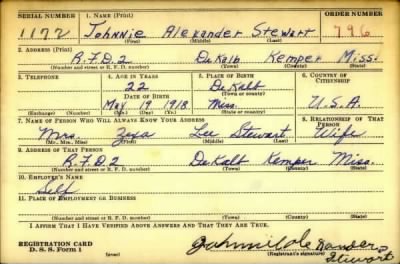 SERIAL NUMBER 1. NAME (Print) ORDER NUMBER
1172 Johnnie Alexander Stewart 796
(First) (Middle) (Last)
2. ADDRESS (Print)
R.F.D.2 DeKalb Kemper Miss.
(Number and street or R. F. D. number) (Town) (County) (State)
3. TELEPHONE 4. AGE IN YEARS 5. PLACE OF BIRTH 6. COUNTRY OF CITIZENSHIP
22 DeKalb
DATE OF BIRTH (Town or county)
May 19 1918 Miss. U.S.A.
(Exchange) (Number) (Mo.) (Day) (Yr.) (State or country)
7. NAME OF PERSON WHO WILL ALWAYS KNOW YOUR ADDRESS 8. RELATIONSHIP OF THAT PERSON
Mrs. Lee Stewart Wife
(Mr., Mrs., Miss) (First) (Middle) (Last)
9. ADDRESS OF THAT PERSON
R.F.D.2 DeKalb Kemper Miss.
(Number and street or R. F. D. number) (Town) (County) (State)
10. EMPLOYER'S NAME
Self
11. PLACE OF EMPLOYMENT OR BUSINESS
(Number and street or R. F. D. number) (Town) (County) (State)
I AFFIRM THAT I HAVE VERIFIED ABOVE ANSWERS AND THAT THEY ARE TRUE.
REGISTRATION CARD
D. S. S. Form 1 (over) (Registrant's signature)
Stewart